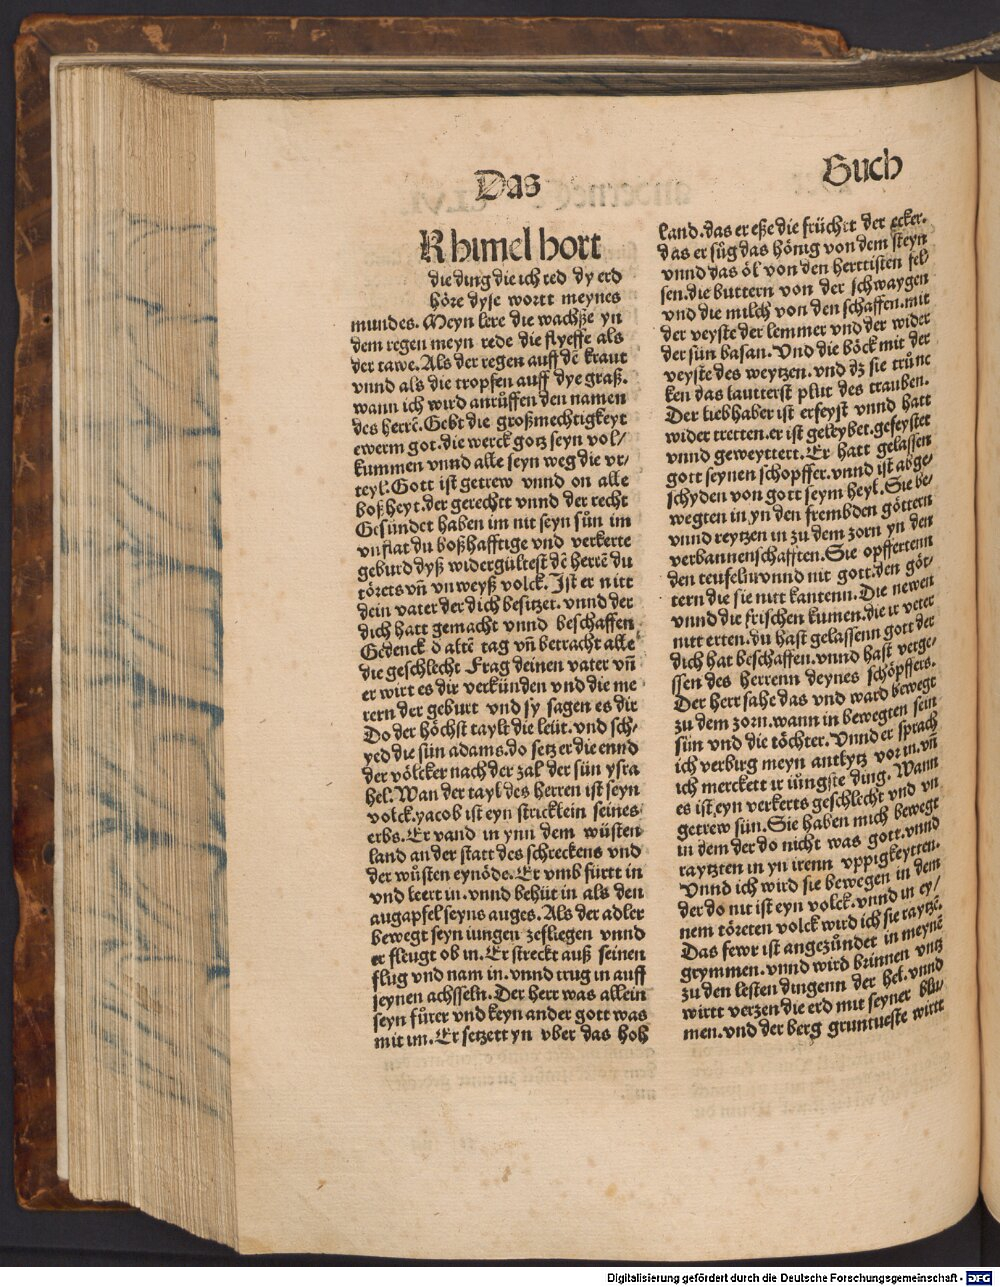 Das
Buch
R himel hort
die ding die ich red dy erd
höre dyse wortt meynes
mundes. Meyn lere die wachsze yn
dem regen meyn rede die flyesse als
der tawe. Als der regen auff dē kraut
vnnd als die tropfen auff dye graß.
wann ich wird anrůffen den namen
des herrē. Gebt die großmechtigkeyt
ewerm got. die werck gotz seyn vol/
kummen vnnd alle seyn weg die vr/
teyl. Gott ist getrew vnnd on alle
boßheyt. der gerechtt vnnd der recht
Gesündet haben im nit seyn sůn im
vnflat du boßhafftige vnd verkerte
geburd dyß widergůltest dē herrē du
törets vn̄ vnweyß volck. Ist er nitt
dein vater der dich besitzet. vnnd der
dich hatt gemacht vnnd beschaffen
Gedenck d̄ altē tag vn̄ betracht alle
die geschlecht Frag deinen vater vn̄
er wirt es dir verkünden vnd die me
rern der geburt vnd sy sagen es dir
Do der höchst taylt die leüt. vnd sch/
yed die sün adams. do setz er die ennd
der völcker nach der zal der sün ysra
hel. Wan der tayl des herren ist seyn
volck. yacob ist eyn stricklein seines
erbs. Er vand in ynn dem wüsten
land an der statt des schreckens vnd
der wůsten eynöde. Er vmb fürtt in
vnd leert in. vnnd behüt in als den
augapfel seyns auges. Als der adler
bewegt seyn iungen zefliegen vnnd
er fleugt ob in. Er streckt auß seinen
flug vnd nam in. vnnd trug in auff
seynen achsseln. Der herr was allein
seyn fürer vnd keyn ander gott was
mit im. Er setzett yn vber das hoh
land. das er eße die früchtt der ecker.
das er sůg das hönig von dem steyn
vnnd das öl von den herttisten fel/
sen. die buttern von der schwaygen
vnd die milch von den schaffen. mit
der veyste der lemmer vnd der wider
der sün basan. Vnd die böck mit der
veyste des weytzen. vnd dz sie trůnc
ken das lautterst plut des trauben.
Der liebhaber ist erfeyst vnnd hatt
wider tretten. er ist geleybet. gefeystet
vnnd geweyttert. Er hatt gelassen
gott seynen schopffer. vnnd ist abge/
schyden von gott seym heyl. Sie be/
wegten in yn den frembden göttern
vnnd reytzen in zu dem zorn yn den
verbannenschafften. Sie opffertenn
den teufeln vnnd nit gott. den göt/
tern die sie nitt kantenn. Die newen
vnnd die frischen kumen. die ir veter
nitt erten. du hast gelassenn gott der
dich hat beschaffen. vnnd hast verge/
ssen des herrenn deynes schöpffers.
Der herr sahe das vnd ward bewegt
zu dem zorn. wann in bewegten sein
sün vnd die töchter. Vnnd er sprach
ich verbirg meyn antlytz vor in. vn̄
ich merckett ir iüngste ding. Wann
es ist eyn verkerts geschlecht vnd vn
getrew sün. Sie haben mich bewegt
in dem der do nicht was gott. vnnd
raytzten in yn irenn vppigkeytten.
Vnnd ich wird sie bewegen in dem
der do nit ist eyn volck. vnnd in ey/
nem töreten volck wird ich sie raytzē.
Das fewr ist angezündet in meynē
grymmen. vnnd wird brinnen vntz
zu den lesten dingenn der hel. vnnd
wirtt verzen die erd mit seyner blu/
men. vnd der berg gruntueste wirtt
Digitalisierung gefördert durch die Deutsche Forschungsgemeinschaft - DFG